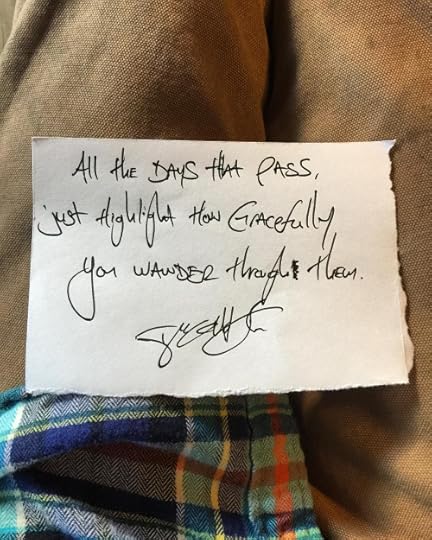 All the DAYS that PASS,
just Highlight How Gracefully
you WANDER through them.